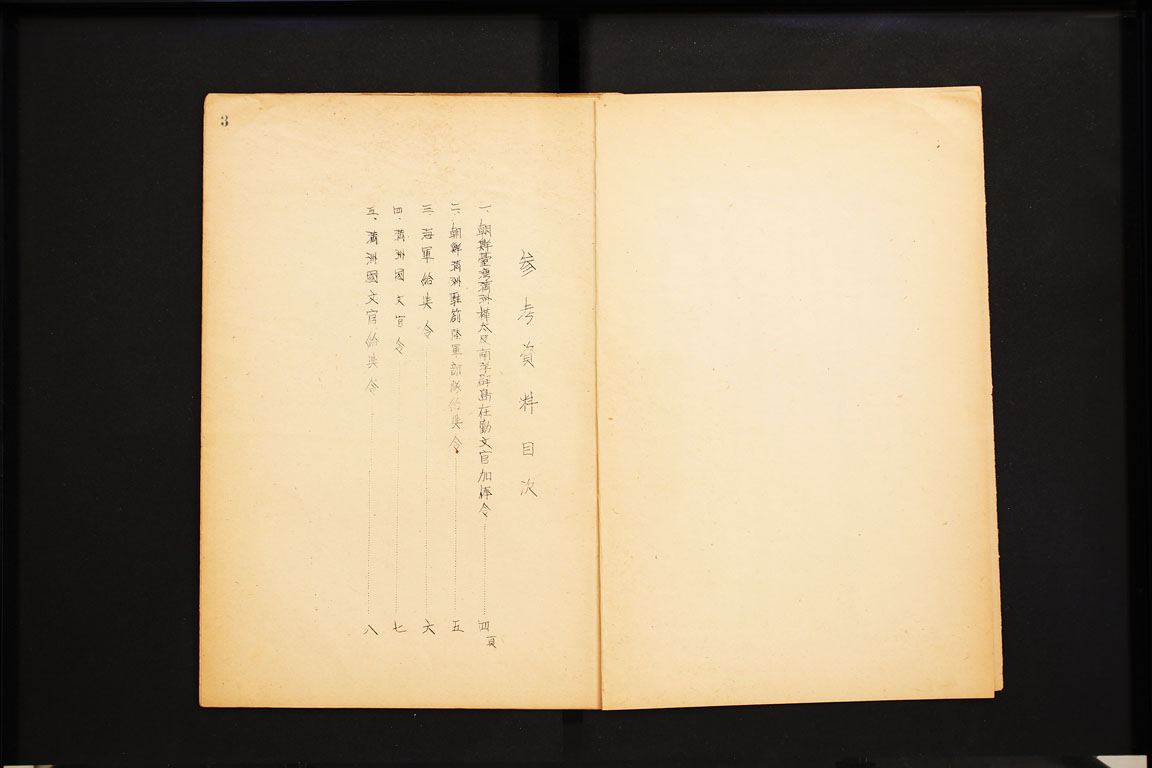 参考資料目次
一、朝鮮臺灣満洲樺太及南洋群島在勤文官加俸令……四頁
二、朝鮮満洲駐箚陸軍部隊給與令……五
三、海軍給與令……六
四、満洲國文官令……七
五、満洲國文官給與令……八
3